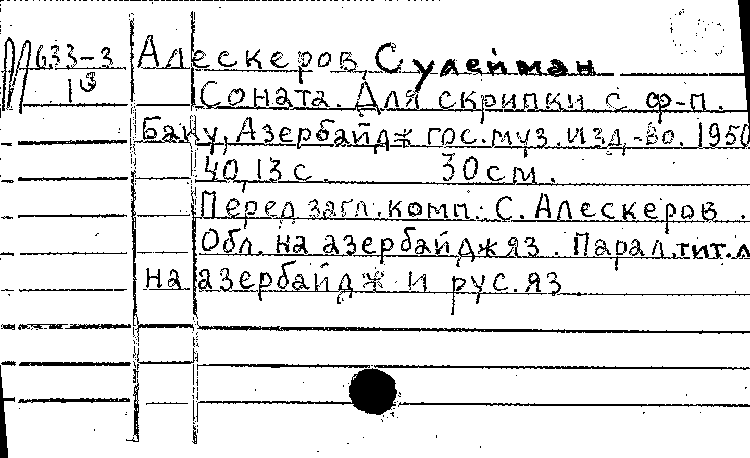 М 633-3 Алескеров, Сулейман
13
Соната. Для скрипки с ф-п.
Баку, Азербайдж гос. муз. изд-во. 1950
40, 13 с. 30 см.
Перед загл. комп.: С. Алескеров.
Обл. на азербайдж яз. Парал. тит. л
на азербайдж и рус. яз